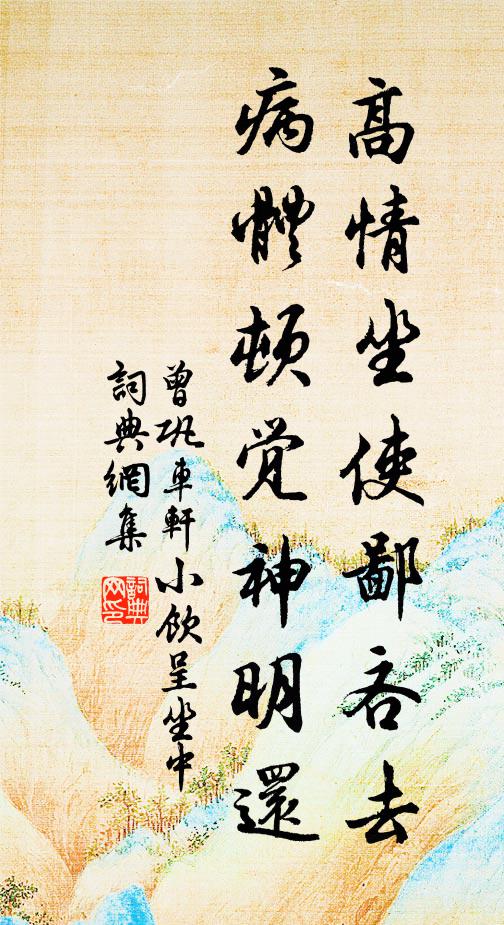 高情坐使鄙吝去
病體頓覺神明還
曾巩車軒小飲呈坐中
詞典網集
詞典网印